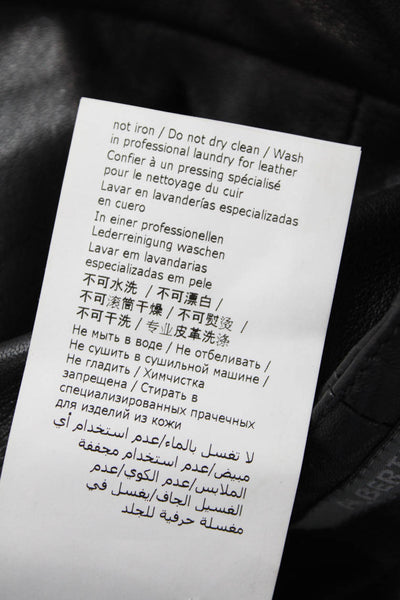 not iron / Do not dry clean / Wash
in professional laundry for leather
Confier à un pressing spécialisé
pour le nettoyage du cuir
Lavar en lavanderías especializadas
en cuero
In einer professionellen
Lederreinigung waschen
Lavar em lavandarias
especializadas em pele
不可水洗 / 不可漂白 /
不可滚筒干燥 / 不可熨烫 /
不可干洗 / 专业皮革洗涤
Не мыть в воде / Не отбеливать /
Не сушить в сушильной машине /
Не гладить / Химчистка
запрещена / Стирать в
специализированных прачечных
для изделий из кожи
لا تغسل بالماء/عدم استخدام أي
مبيض/عدم استخدام مجففة
الملابس/عدم الكوي/عدم
الغسيل الجاف/يغسل في
مغسلة حرفية للجلد